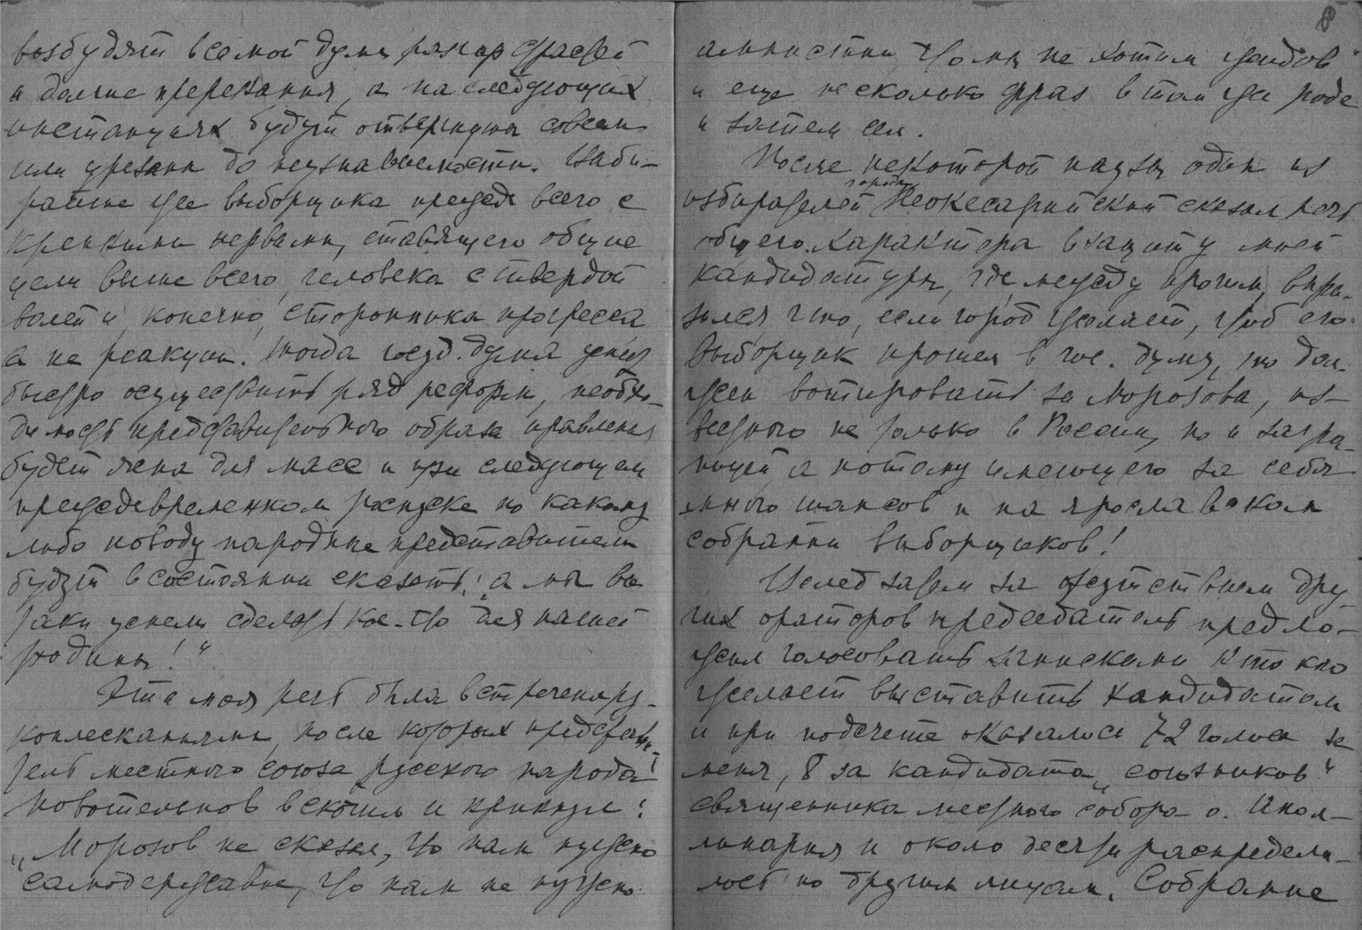 возбудят в самой думе разгар страстей
и долгие пререкания, а на следующих
инстанциях будут отвергнуты совсем
или урезаны до неузнаваемости. Изби-
райте же выборщика прежде всего с
крепкими нервами, ставящего общие
цели выше всего, человека с твердой
волей и, конечно, сторонника прогресса
а не реакции. Тогда госуд. дума успеет
быстро осуществить ряд реформ, необхо-
димость представительного образа правления
будет ясна для масс и при следующем
преждевременном роспуске по какому
либо поводу народные представители
будут в состоянии сказать: „а мы все
таки успели сделать кое-что для нашей
родины!"
Эта моя речь была встречена ру-
коплесканиями, после которых представи-
тель местного союза русского народа
Новотельнов вскочил и крикнул:
„Морозов не сказал, что нам нужно
самодержавие, что нам не нужно
8
амнистии, что мы не хотим жидов"
и еще несколько фраз в том же роде
и затем сел.
После некоторой паузы один из
избирателей города Неокесарийский сказал речь
общего характера в защиту моей
кандидатуры, где между прочим, выра-
зился что, если город желает, чтоб его
выборщик прошел в гос. думу, то дол-
жен вотировать за Морозова, из-
вестного не только в России, но и загра-
ницей а потому имеющего за себя
много шансов и на ярославском
собрании выборщиков!
Вслед затем за отсутствием дру
гих ораторов председатель предло-
жил голосовать записками кто кого
желает выставить кандидатом
и при подсчете оказалось 72 голоса за
меня, 8 за кандидата „союзников"
священника местного собора о. Апол-
линария и около десяти распредели-
лось по другим лицам. Собрание